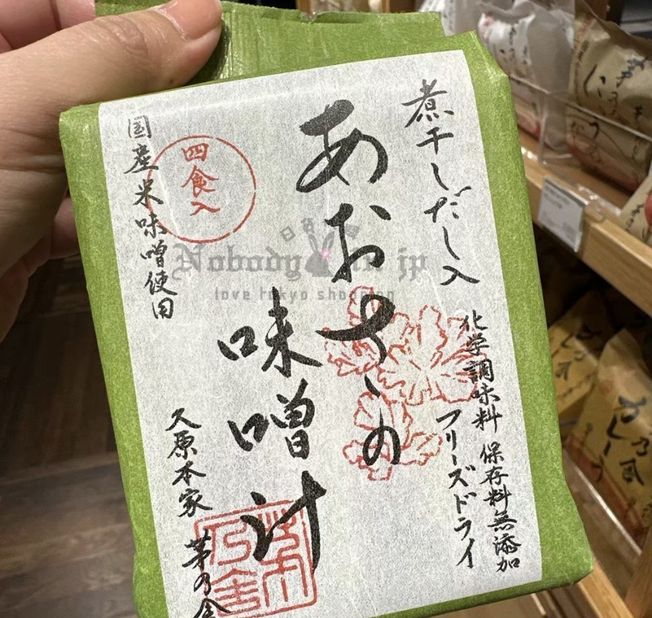 煮干しだし入
あおさの
味噌汁
化学調味料 保存料無添加
フリーズドライ
四食入
国産米味噌使用
久原本家 茅の舎
Nobody
jp
love tokyo shopping